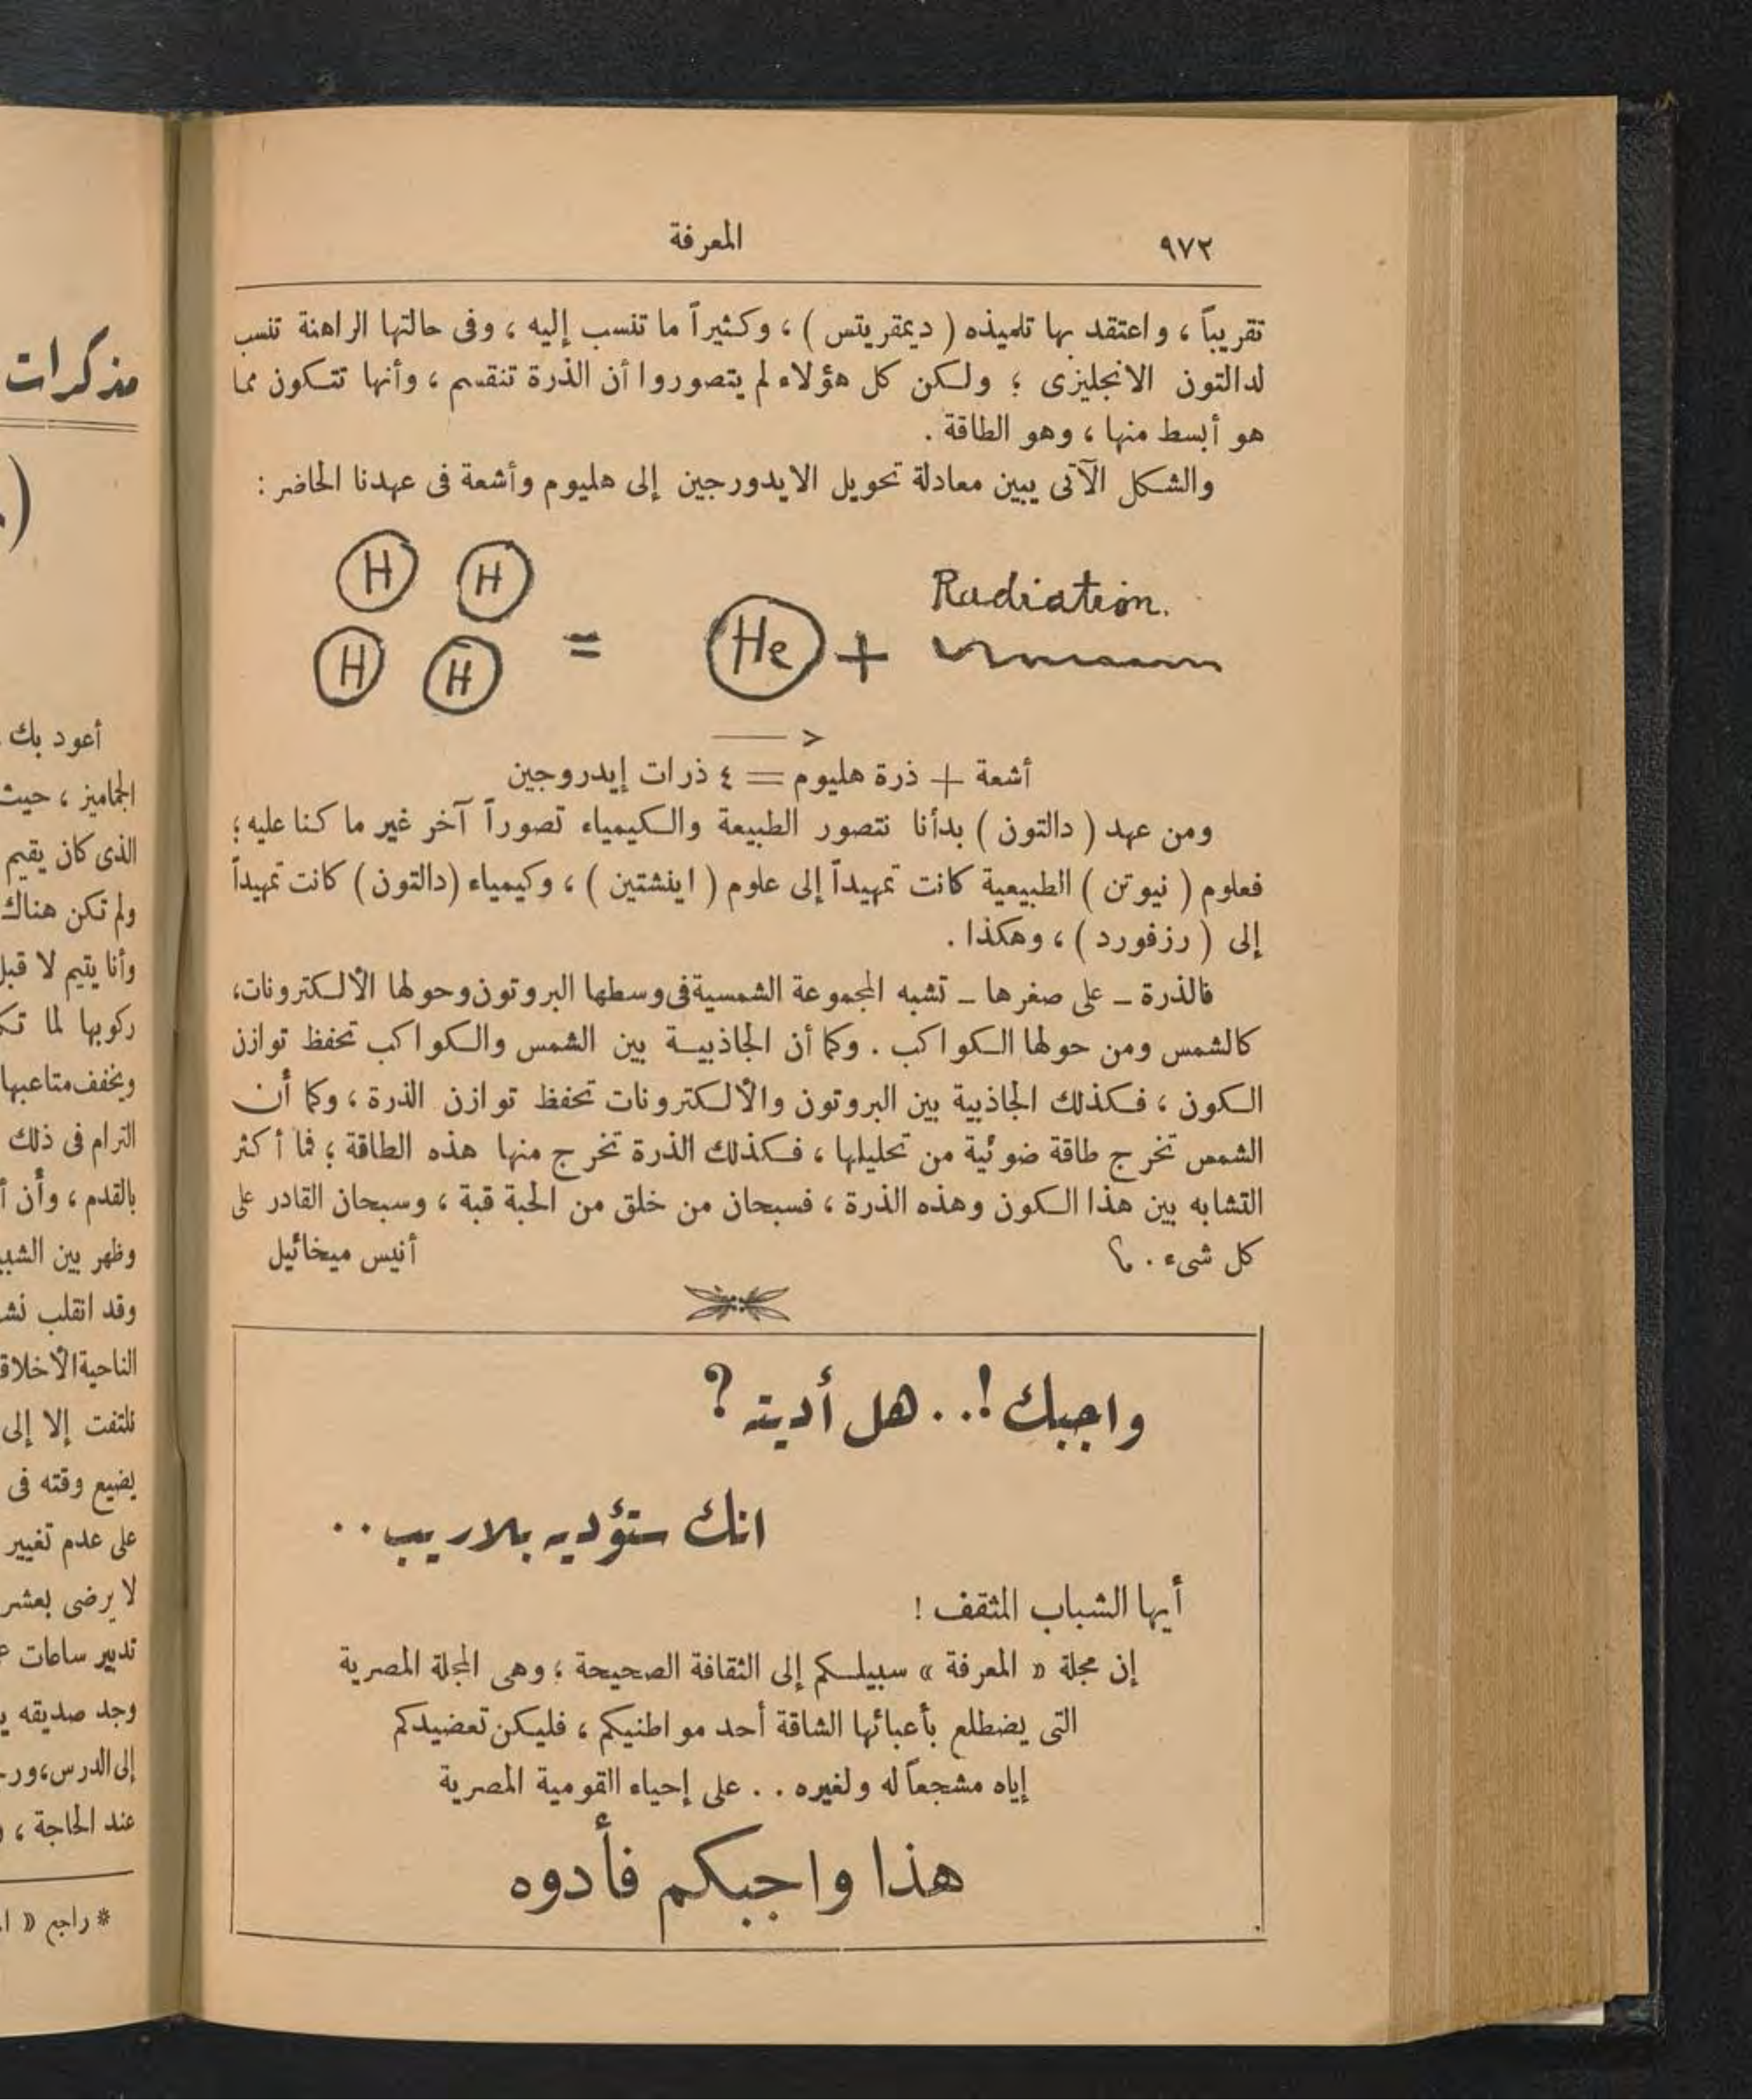 ٩٧٢
المعرفة
تقريباً ، واعتقد بها تلميذه ( ديمقريتس ) ، وكثيراً ما تنسب إليه ، وفى حالتها الراهنة تنسب
لدالتون الانجليزى ؛ ولكن كل هؤلاء لم يتصوروا أن الذرة تنقسم ، وأنها تتكون مما
هو أبسط منها ، وهو الطاقة .
والشكل الآتى يبين معادلة تحويل الايدورجين إلى هليوم وأشعة فى عهدنا الحاضر :
H H
Radiation.
H H = He +
أشعة + ذرة هليوم = ٤ ذرات إيدروجين
ومن عهد ( دالتون ) بدأنا نتصور الطبيعة والكيمياء تصوراً آخر غير ما كنا عليه ؛
فعلوم ( نيوتن ) الطبيعية كانت تمهيداً إلى علوم ( اينشتين ) ، وكيمياء (دالتون) كانت تمهيداً
إلى ( رزفورد ) ، وهكذا .
فالذرة – على صغرها – تشبه المجموعة الشمسية فى وسطها البروتون وحولها الألكترونات،
كالشمس ومن حولها الكواكب . وكما أن الجاذبية بين الشمس والكواكب تحفظ توازن
الكون ، فكذلك الجاذبية بين البروتون والألكترونات تحفظ توازن الذرة ، وكما أن
الشمس تخرج طاقة ضوئية من تحليلها ، فكذلك الذرة تخرج منها هذه الطاقة ؛ فما أكثر
التشابه بين هذا الكون وهذه الذرة ، فسبحان من خلق من الحبة قبة ، وسبحان القادر على
كل شىء . م؟
أنيس ميخائيل
واجبك !.. هل أديته ؟
انك ستؤديه بلاريب ..
أيها الشباب المثقف !
إن مجلة « المعرفة » سبيلكم إلى الثقافة الصحيحة ؛ وهى المجلة المصرية
التى يضطلع بأعبائها الشاقة أحد مواطنيكم ، فليكن تعضيدكم
إياه مشجعاً له ولغيره .. على إحياء القومية المصرية
هذا واجبكم فأدوه
مذكرات
أعود بك
الجماميز ، حيث
الذى كان يقيم
ولم تكن هناك
وأنا يتيم لا قبل
ركوبها لما
ويخفف متاعبها
الترام فى ذلك
بالقدم ، وأن
وظهر بين
وقد انقلب
الناحية
نلتفت إلا إلى
يضيع وقته فى
على عدم تغيير
لا يرضى بعشر
تدبير ساعات
وجد صديقه
إلى الدرس،
عند الحاجة ،
* راجع «